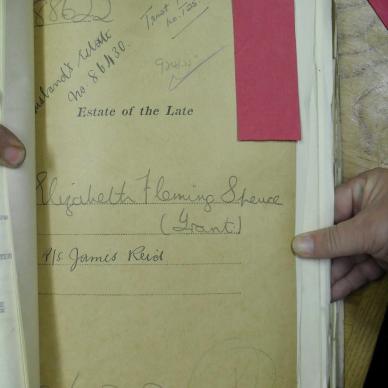 88622
Trust
No. 733.
Husband's Estate
No. 86430.
Estate of the Late
Elizabeth Fleming Spence
(Grant)
James Reid